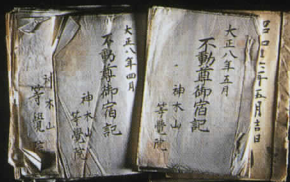 昭和十六年五月吉日
大正八年五月
不動尊御宿記
神木山
等覺院
大正八年四月
不動尊御宿記
神木山
等覺院
神木山
等覺院